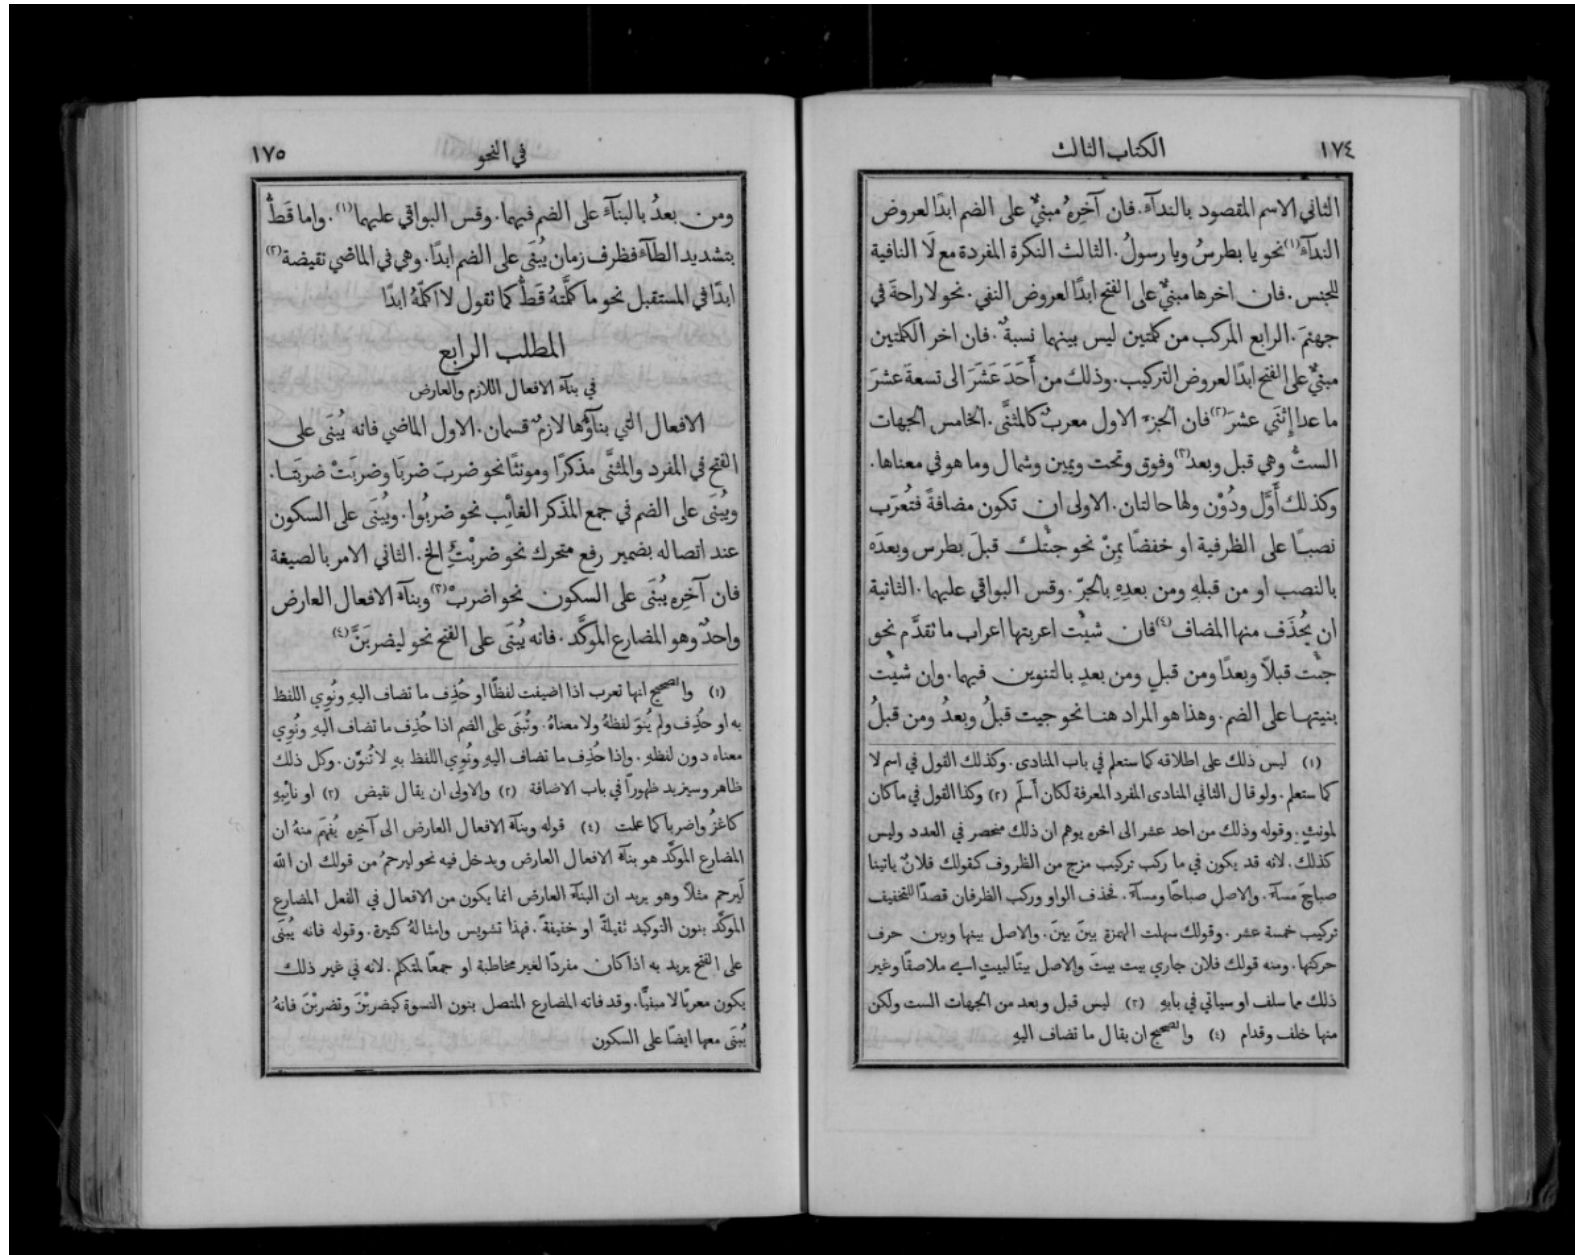 ١٧٤
الكتاب الثالث
الثاني الاسم المقصود بالندآء. فان آخرهُ مبنيٌّ على الضم ابدًا لعروض
الندآء(١) نحو يا بطرسُ ويا رسولُ. الثالث النكرة المفردة مع لَا النافية
للجنس. فان اخرها مبنيٌّ على الفتح ابدًا لعروض النفي. نحو لا راحةَ في
جهنمَ. الرابع المركب من كلمتين ليس بينهما نسبةٌ. فان اخر الكلمتين
مبنيٌّ على الفتح ابدًا لعروض التركيب. وذلك من أَحَدَ عَشَرَ الى تسعةَ عشرَ
ما عدا إثنَي عشرَ(٢) فان الجزء الاول معربٌ كالمثنَّى. الخامس الجهات
الستُّ وهي قبل وبعد(٣) وفوق وتحت ويمين وشمال وما هو في معناها.
وكذلك أَوَّل ودُوْن ولها حالتان. الاولى ان تكون مضافةً فتُعرَب
نصبًا على الظرفية او خفضًا بِمِنْ نحو جئتك قبلَ بطرس وبعدَه
بالنصب او من قبلهِ ومن بعدِهِ بالجرّ. وقس البواقي عليهما. الثانية
ان يُحذَف منها المضاف(٤) فان شيْت اعربتها اعراب ما تقدَّم نحو
جئت قبلاً وبعدًا ومن قبلٍ ومن بعدٍ بالتنوين فيهما. وان شيْت
بنيتها على الضم. وهذا هو المراد هنا نحو جيت قبلُ وبعدُ ومن قبلُ
(١) ليس ذلك على اطلاقه كما ستعلم في باب المنادى. وكذلك القول في اسم لا
كما ستعلم. ولو قال الثاني المنادى المفرد المعرفة لكان أسلم (٢) وكذا القول في ما كان
لمونثٍ. وقوله وذلك من احد عشر الى اخره يوهم ان ذلك منحصر في العدد وليس
كذلك. لانه قد يكون في ما ركب تركيب مزج من الظروف كقولك فلانٌ ياتينا
صباحَ مسآءَ. والاصل صباحًا ومسآءً. فحذف الواو وركب الظرفان قصدًا للتخفيف
تركيب خمسة عشر. وقولك سهلت الهمزة بينَ بينَ. والاصل بينها وبين حرف
حركتها. ومنه قولك فلان جاري بيت بيتَ والاصل بيتًا لبيتٍ اي ملاصقًا وغير
ذلك مما سلف او سياتي في بابهِ (٣) ليس قبل وبعد من الجهات الست ولكن
منها خلف وقدام (٤) والصحيح ان يقال ما تضاف اليهِ
في النحو
١٧٥
ومن بعدُ بالبنآء على الضم فيهما. وقس البواقي عليهما(١). واما قَطُّ
بتشديد الطآء فظرف زمان يُبنَى على الضم ابدًا. وهي في الماضي نقيضة(٢)
ابدًا في المستقبل نحو ما كلَّمتهُ قَطُّ كما تقول لا اكلّمهُ ابدًا
المطلب الرابع
في بنآء الافعال اللازم والعارض
الافعال التي بنآؤُها لازمٌ قسمان. الاول الماضي فانه يُبنَى على
الفتح في المفرد والمثنَّى مذكرًا ومونثًا نحو ضربَ ضربَا وضربَتْ ضربَتَا.
ويُبنَى على الضم في جمع المذكر الغائِب نحو ضربُوا. ويُبنَى على السكون
عند اتصاله بضمير رفع متحرك نحو ضربْتُ الخ. الثاني الامر بالصيغة
فان آخره يُبنَى على السكون نحو اضربْ(٣) وبنآء الافعال العارض
واحدٌ وهو المضارع الموكَّد. فانه يُبنَى على الفتح نحو ليضربَنَّ(٤)
(١) والصحيح انها تعرب اذا اضيفت لفظًا او حُذِف ما تضاف اليهِ ونُوِي اللفظ
به او حُذِف ولم يُنوَ لفظهُ ولا معناهُ. وتُبنَى على الضم اذا حُذِف ما تضاف اليهِ ونُوِي
معناه دون لفظهِ. واذا حُذِف ما تضاف اليهِ ونُوِي اللفظ بهِ لا تُنوَّن. وكل ذلك
ظاهر وسيزيد ظهوراً في باب الاضافة (٢) والاولى ان يقال نقيض (٣) او نائِبهِ
كاغزُ واضربا كما علمت (٤) قوله وبنآء الافعال العارض الى آخره يُفهَم منهُ ان
المضارع الموكّد هو بنآء الافعال العارض ويدخل فيه نحو ليرحمُ من قولك ان الله
لَيرحم مثلاً وهو يريد ان البنآء العارض انما يكون من الافعال في الفعل المضارع
الموكَّد بنون التوكيد ثقيلةً او خفيفةً. فهذا تشويس وامثالهُ كثيرة. وقوله فانه يُبنَى
على الفتح يريد به اذا كان مفردًا لغير مخاطبة او جمعًا لمتكلم. لانه في غير ذلك
يكون معربًا لا مبنيًّا. وقد فاته المضارع المتصل بنون النسوة كيضربْنَ وتضربْنَ فانهُ
يُبنَى معها ايضًا على السكون